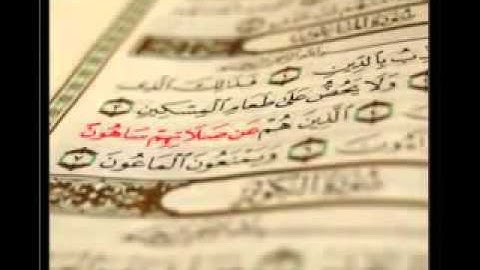 سُورَةُ المَاعُونِ
بِالدِّينِ ١ فَذَٰلِكَ الَّذِي
وَلَا يَحُضُّ عَلَىٰ طَعَامِ الْمِسْكِينِ ٣
الَّذِينَ هُمْ عَن صَلَاتِهِمْ سَاهُونَ
وَيَمْنَعُونَ الْمَاعُونَ ٧
سُورَةُ الكَوْثَرِ